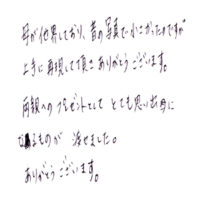 母が他界しており、昔の写真で小さかったのですが
上手に再現して頂きありがとうございます。
両親へのプレゼントとしてとても思い出に
なるものが 渡せました。
ありがとうございます。